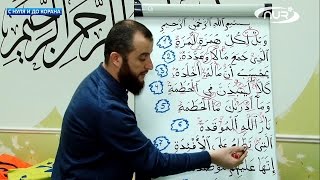 С НУЛЯ И ДО КОРАНА
NUR
بسم الله الرحمن الرحيم
وَيْلٌ لِكُلِّ هُمَزَةٍ لُمَزَةٍ
الَّذِي جَمَعَ مَالًا وَعَدَّدَهُ
يَحْسَبُ أَنَّ مَالَهُ أَخْلَدَهُ
كَلَّا لَيُنْبَذَنَّ فِي الْحُطَمَةِ
وَمَا أَدْرَاكَ مَا الْحُطَمَةُ
نَارُ اللهِ الْمُوقَدَةُ
الَّتِي تَطَّلِعُ عَلَى الْأَفْئِدَةِ
إِنَّهَا عَلَيْهِمْ